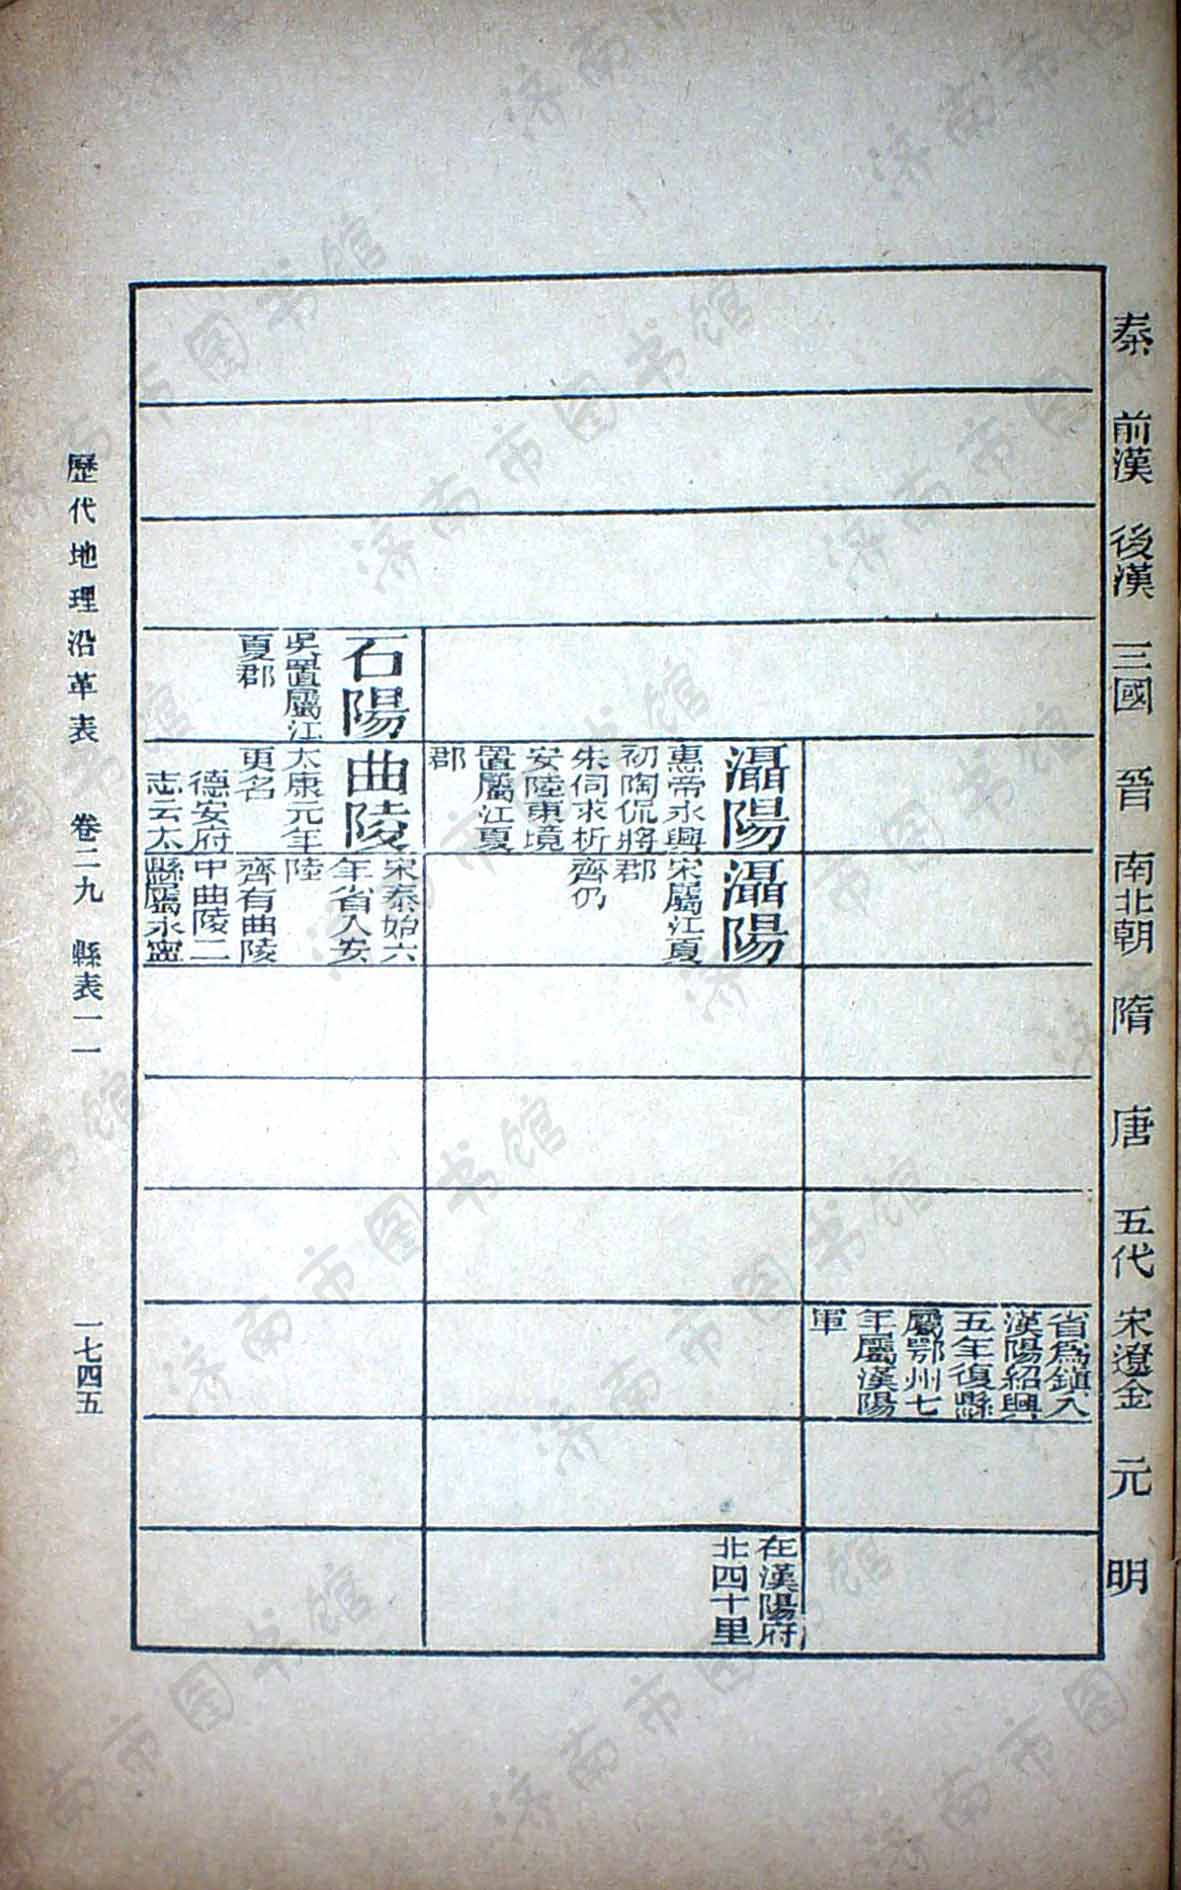 秦
前漢
後漢
三國
晉
南北朝
隋
唐
五代
宋遼金
元
明
省爲鎮入
漢陽紹興
五年復縣
屬鄂州七
年屬漢陽
軍
灄陽
惠帝永興
初陶侃將
朱伺求析
安陸東境
置屬江夏
郡
灄陽
宋屬江夏
郡
齊仍
在漢陽府
北四十里
石陽
吳置屬江
夏郡
曲陵
太康元年
更名
德安府
志云太
宋泰始六
年省入安
陸
齊有曲陵
中曲陵二
縣屬永寧
歷代地理沿革表 卷二九 縣表一一
一七四五
济南市图书馆